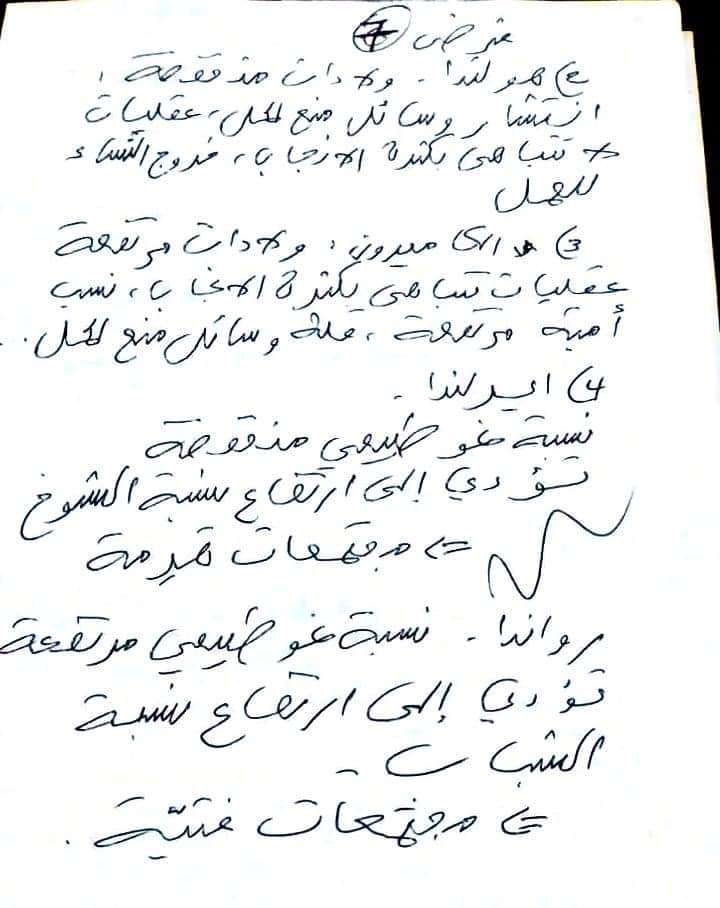 عرض 7
2) هولندا - ولادات منخفضة،
انتشار وسائل منع الحمل، عقليات
لا تتباهى بكثرة الانجاب، خروج النساء
للعمل
3) الكاميرون: ولادات مرتفعة
عقليات تتباهى بكثرة الانجاب، نسب
أمية مرتفعة، قلة وسائل منع الحمل..
4) ايرلندا -
نسبة نمو طبيعي منخفضة
تؤدي إلى ارتفاع نسبة الشيوخ
=> مجتمعات هرمة
رواندا - نسبة نمو طبيعي مرتفعة
تؤدي إلى ارتفاع نسبة
الشباب -
=> مجتمعات فتيّة.